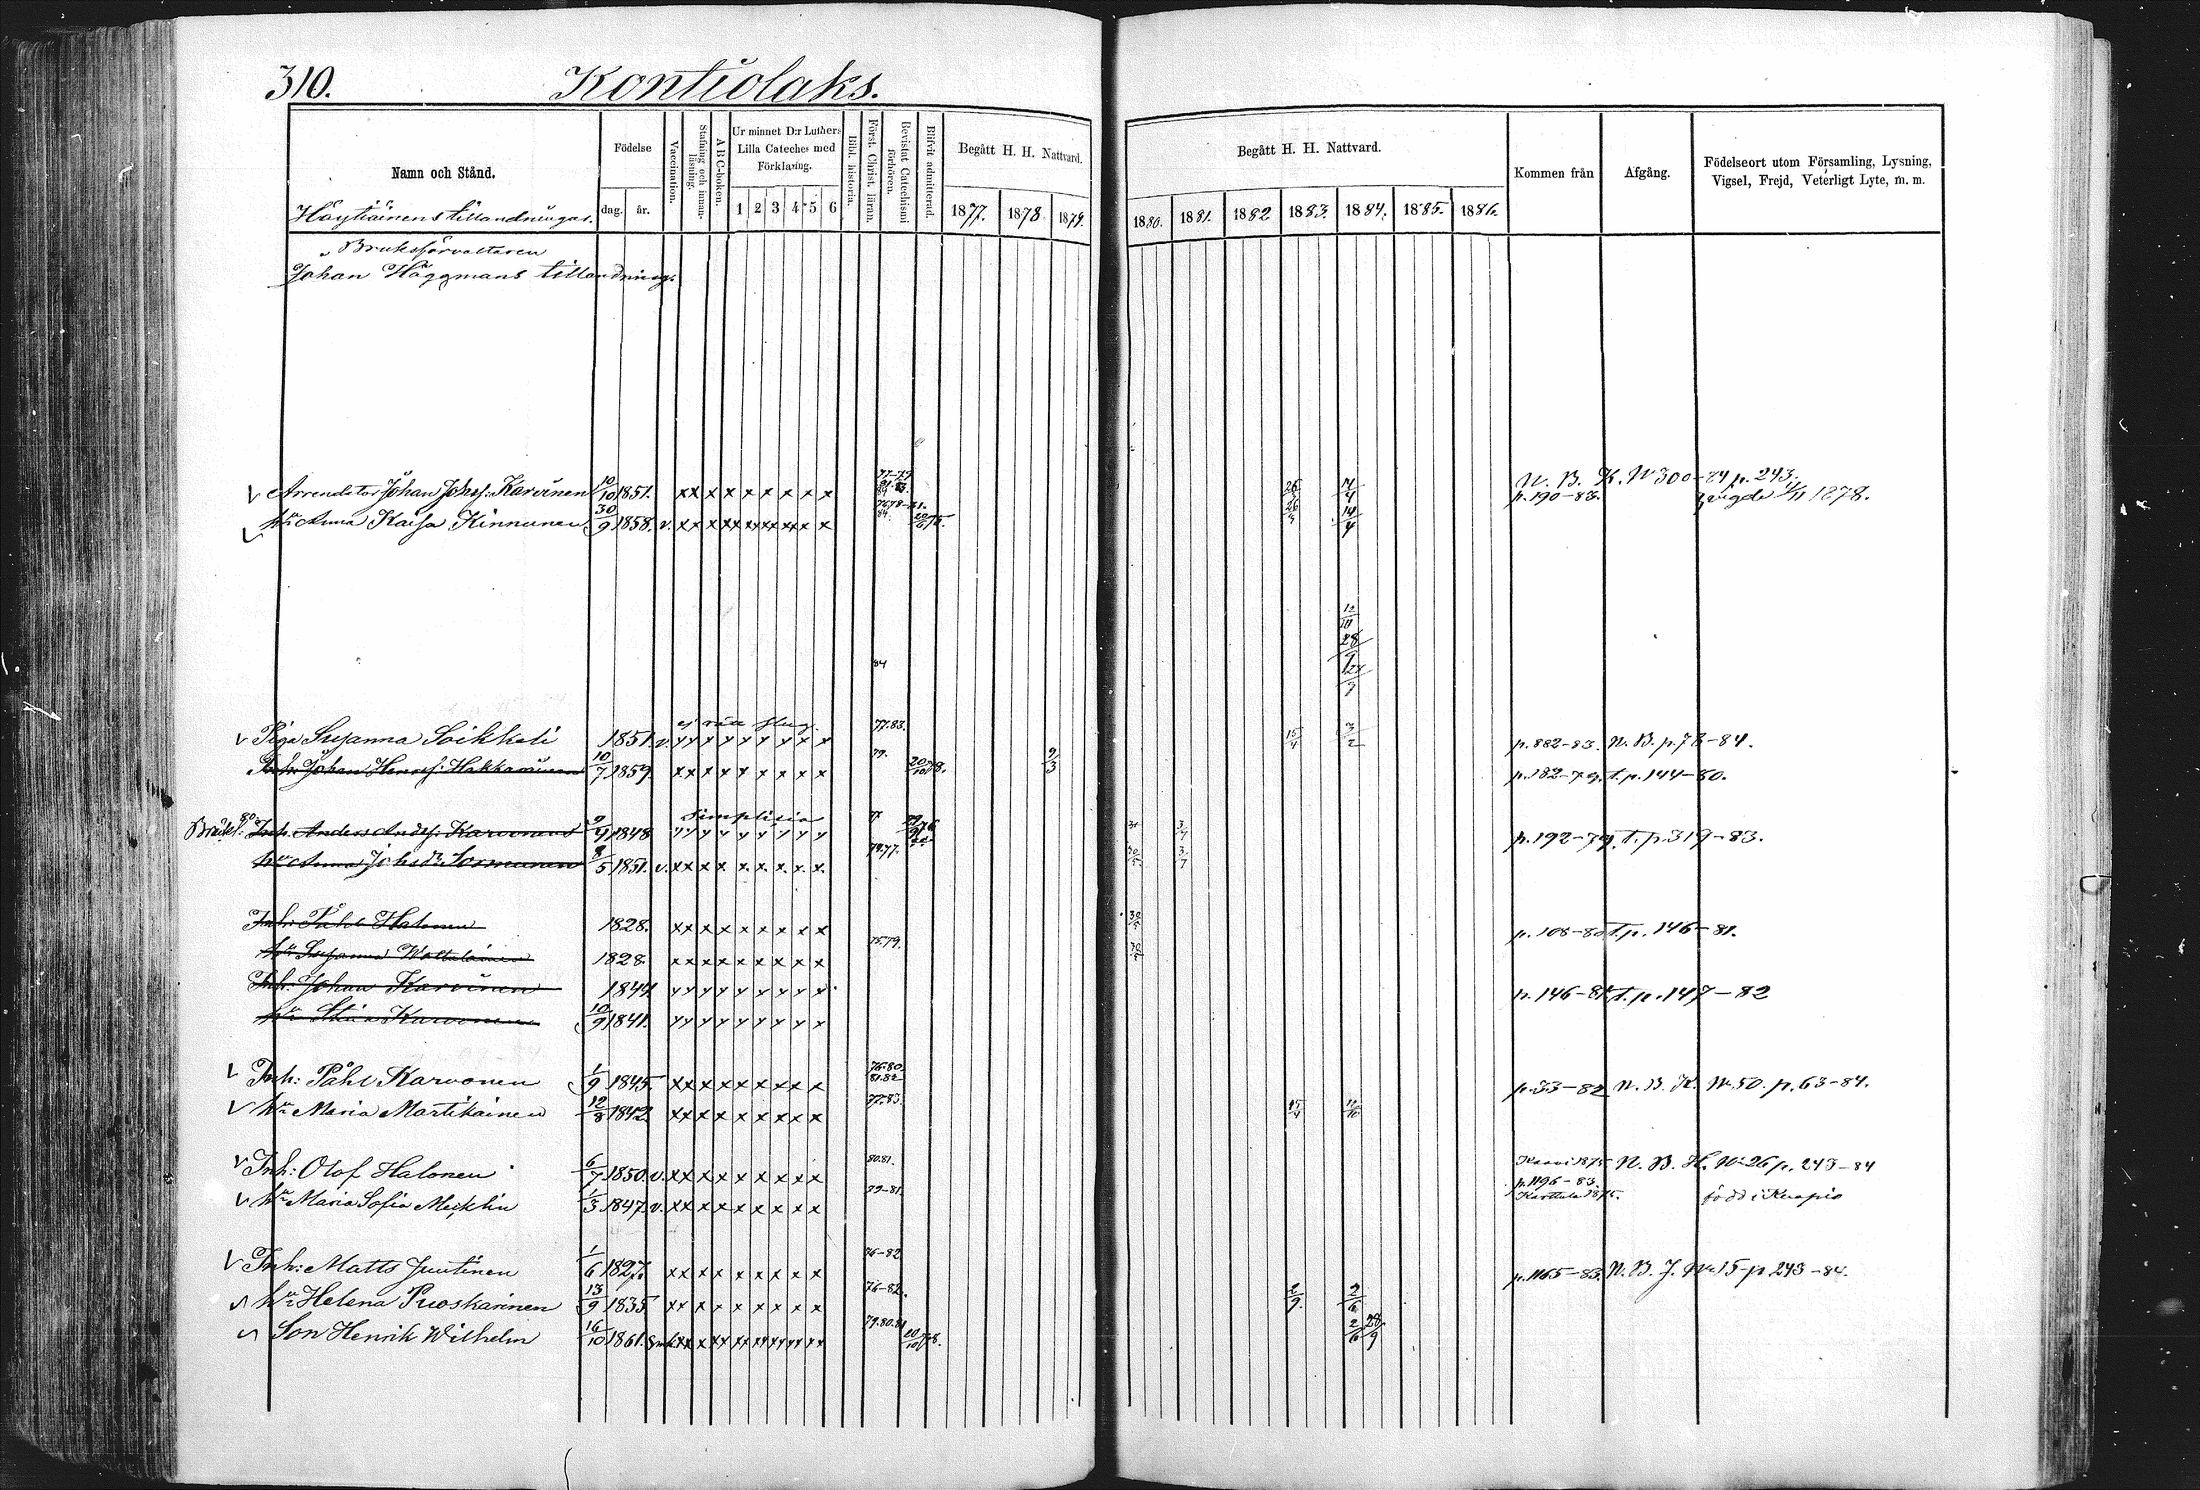 310. Kontiolaks.
Namn och Stånd. Födelse dag. år. Vaccination. Stafning och innanläsning. A B C-boken. Ur minnet D:r Luthers Lilla Cateches med Förklaring. 1 2 3 4 5 6 Bibl. historia. Först. Christ. läran. Bevistat Catechismi förhören. Blifvit admitterad. Begått H. H. Nattvard. 1877. 1878. 1879.
Begått H. H. Nattvard. 1880. 1881. 1882 1883. 1884. 1885. 1886. Kommen från Afgång. Födelseort utom Församling, Lysning, Vigsel, Frejd, Veterligt Lyte, m. m.
Höytiäinens tillandningar.
Bruksförvaltaren
Johan Häggmans tillandning.
Arrendator Johan Johsf: Karvinen 10/10 1851. x x x x x x x x x 77-79 81-83. 84 26/3 14/4 p. 190-83. N. B. K. N 300-84 p. 243.
hu Anna Kaisa Kinnunen 30/9 1858. v. xx x xx xx xx xx x x 84. 26/3 14/4 vigde 1/11 1878.
12/10
28/9
84
Piga Susanna Soikkeli 1851. v. ej rätt slug. y y y y y y y y x 77.83. 15/4 3/2 p. 882-83. N. B. p. 78-84.
Inh: Johan Henrsf: Hakkarainen 10/7 1859. x x x x x x x x x 79. 20/10 78. 9/3 p. 182-79. t. p. 144-80.
Inh: Anders Andsf: Karvonens 1848 Simplicia y y y y y y y y y p. 192-79. t. p. 319-83.
hu Anna Johsdr Sormunen 8/5 1851. v. x x x x. x. x. x. x. x. 30/5 3/7
Inh: Påhl Halonen 1828. x x x x x x x x x 30/5 p. 108-80 t. p. 146-81.
hu Susanna Waltalainen 1828. x x x x x x x x x 75.79. 30/5
Inh: Johan Karvinen 1844 y y y y y y y y y p. 146-81 t. p. 147-82
hu Stina Karvonen 10/9 1841. y y y y y y y y x
Inh: Påhl Karvonen 1/9 1845. x x x x x x x x x 76-80 81.82 p. 33-82 N. B. K. N. 50. p. 63-84.
hu Maria Martikainen 12/8 1842. x x x x x x x x x 77.83. 15/4 12/10
Inh: Olof Halonen 6/7 1850. v. x x x x x x x x x 80.81. Kaavi 1875 N. B. H. N: 26 p. 243-84
p. 1196-83.
hu Maria Sofia Mecklin 1/3 1847. v. x x x x x x x x x 79-81. Karttula 1875. född i Kuopio
Inh: Matts Juutinen 1/6 1827. x x x x x x x x x 76-82 p. 1165-83. N. B. J. N: 15 p 243-84.
hu Helena Puoskarinen 13/9 1835 x x x x x x x x x 76-82. 2/9. 2/6
Son Henrik Wilhelm 16/10 1861. xx x xx xx xx xx xx xx 79.80.81 20/10 78. 2/6 28/9